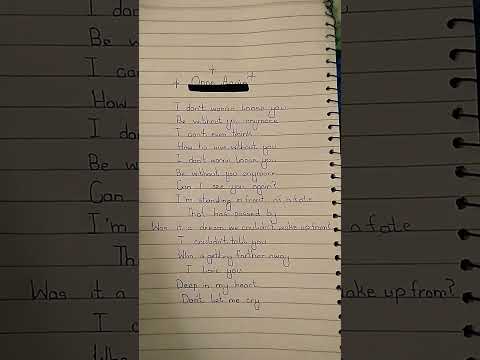 Once Again
I don't wanna loose you
Be without you anymore
I can't even think
How to live without you
I don't wanna loose you
Be without you anymore
Can I see you again?
I'm standing in front of a fate
That has passed by
Was it a dream we couldn't wake up from?
I couldn't told you
Who's getting farther away
I love you
Deep in my heart
Don't let me cry